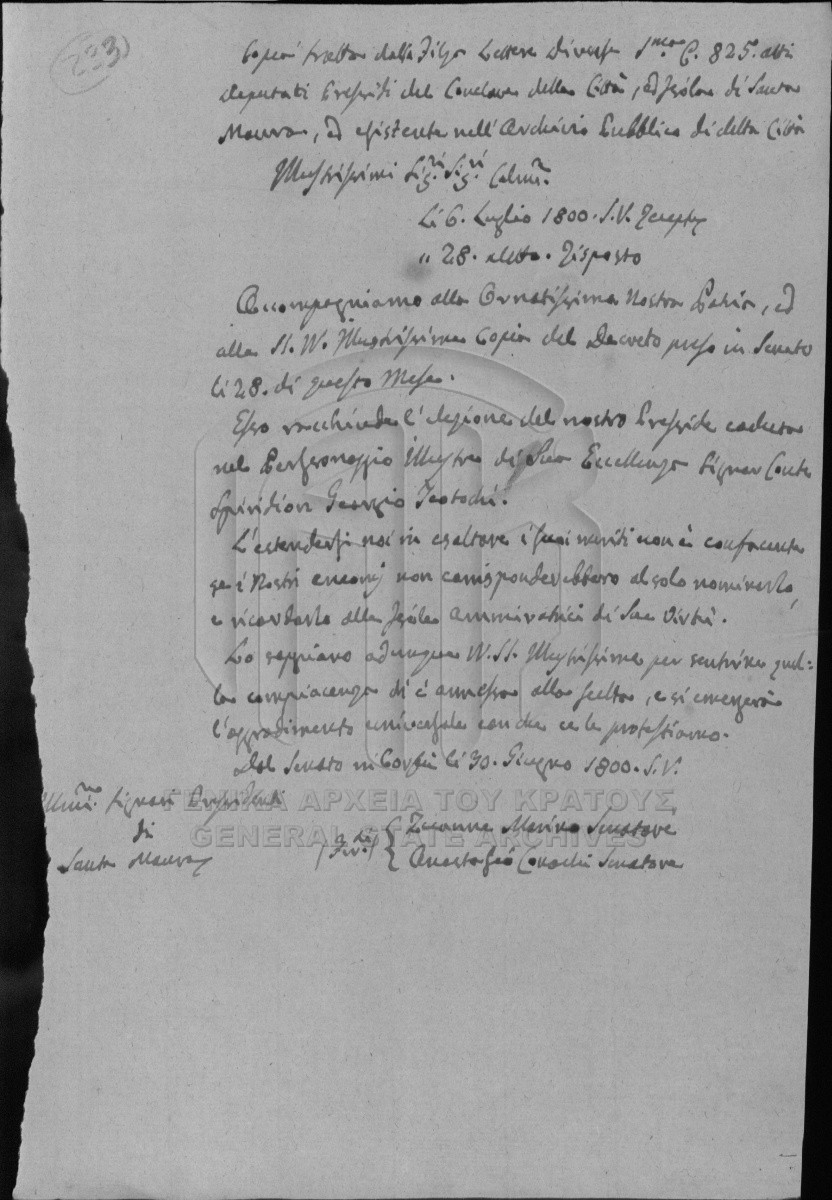 233
Copia tratta dalla Filza Lettere Diverse C. 825. atti
deputati Pressidi del Conclave della Città, ed Isola di Santa
Maura, ed esistente nell'Archivio Pubblico di detta Città
Illustrissimi Sig.ri Sig.ri
Li 6. Luglio 1800. S.V.
" 28. detto. Risposto
Accompagniamo alla Ornatissima Nostra Patria, ed
alla SS. VV. Illustrissime Copia del Decreto preso in Senato
li 28. di questo Mese.
Esso racchiude l'elezione del nostro Presside caduta
nel Perssonaggio Illustre di Sua Eccellenza Signor Conte
Spiridion Georgio Teotochi.
L'estendersi noi in esaltare i suoi meriti non è confacente
se i Nostri encomj non corrisponderebbero al solo nominarlo,
e ricordarlo alle Isole ammiratrici di Sue Virtù.
Lo sappiano adunque VV. SS. Illustrissime per sentire quel=
la compiacenza ch'è annessa alla scelta, e si
l'aggradimento universale con che ce le protestiamo.
Dal Senato in Corfù li 30. Giugno 1800. S.V.
Signori Pressidenti
di
Santa Maura
Zuanne Marino Senatore
Anastasio Conachi Senatore
ΓΕΝΙΚΑ ΑΡΧΕΙΑ ΤΟΥ ΚΡΑΤΟΥΣ
GENERAL STATE ARCHIVES